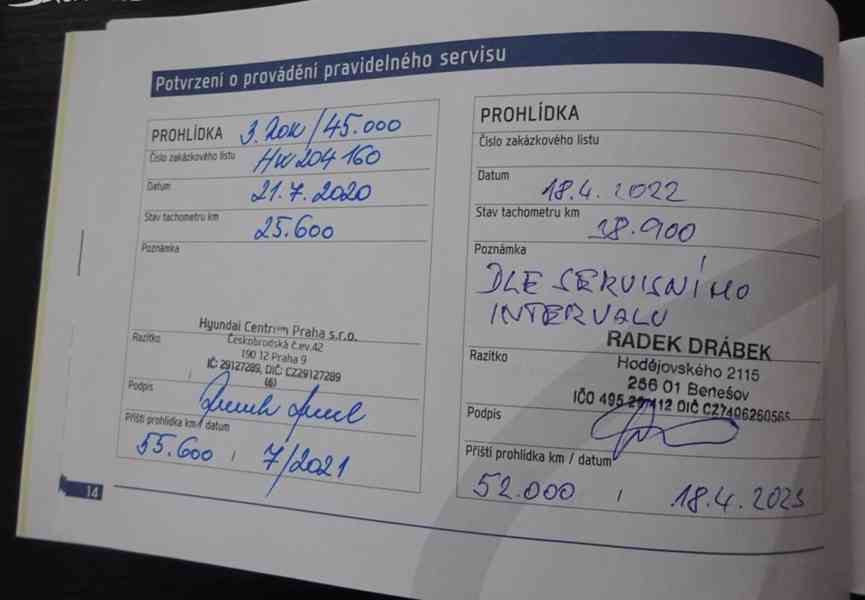 Potvrzení o provádění pravidelného servisu
PROHLÍDKA 3. ROK / 45.000
Číslo zakázkového listu HW204160
Datum 21.7.2020
Stav tachometru km 25.600
Poznámka
Hyundai Centrum Praha s.r.o.
Českobrodská č.ev.42
Razítko
190 12 Praha 9
IČ: 29127289, DIČ: CZ29127289
(6)
Podpis
Příští prohlídka km / datum
55.600 / 7/2021
14
PROHLÍDKA
Číslo zakázkového listu
Datum 18.4.2022
Stav tachometru km 38.900
Poznámka
DLE SERVISNÍHO
INTERVALU
RADEK DRÁBEK
Razítko
Hodějovského 2115
256 01 Benešov
IČO 495 29 412 DIČ CZ7406260565
Podpis
Příští prohlídka km / datum
52.000 / 18.4.2023